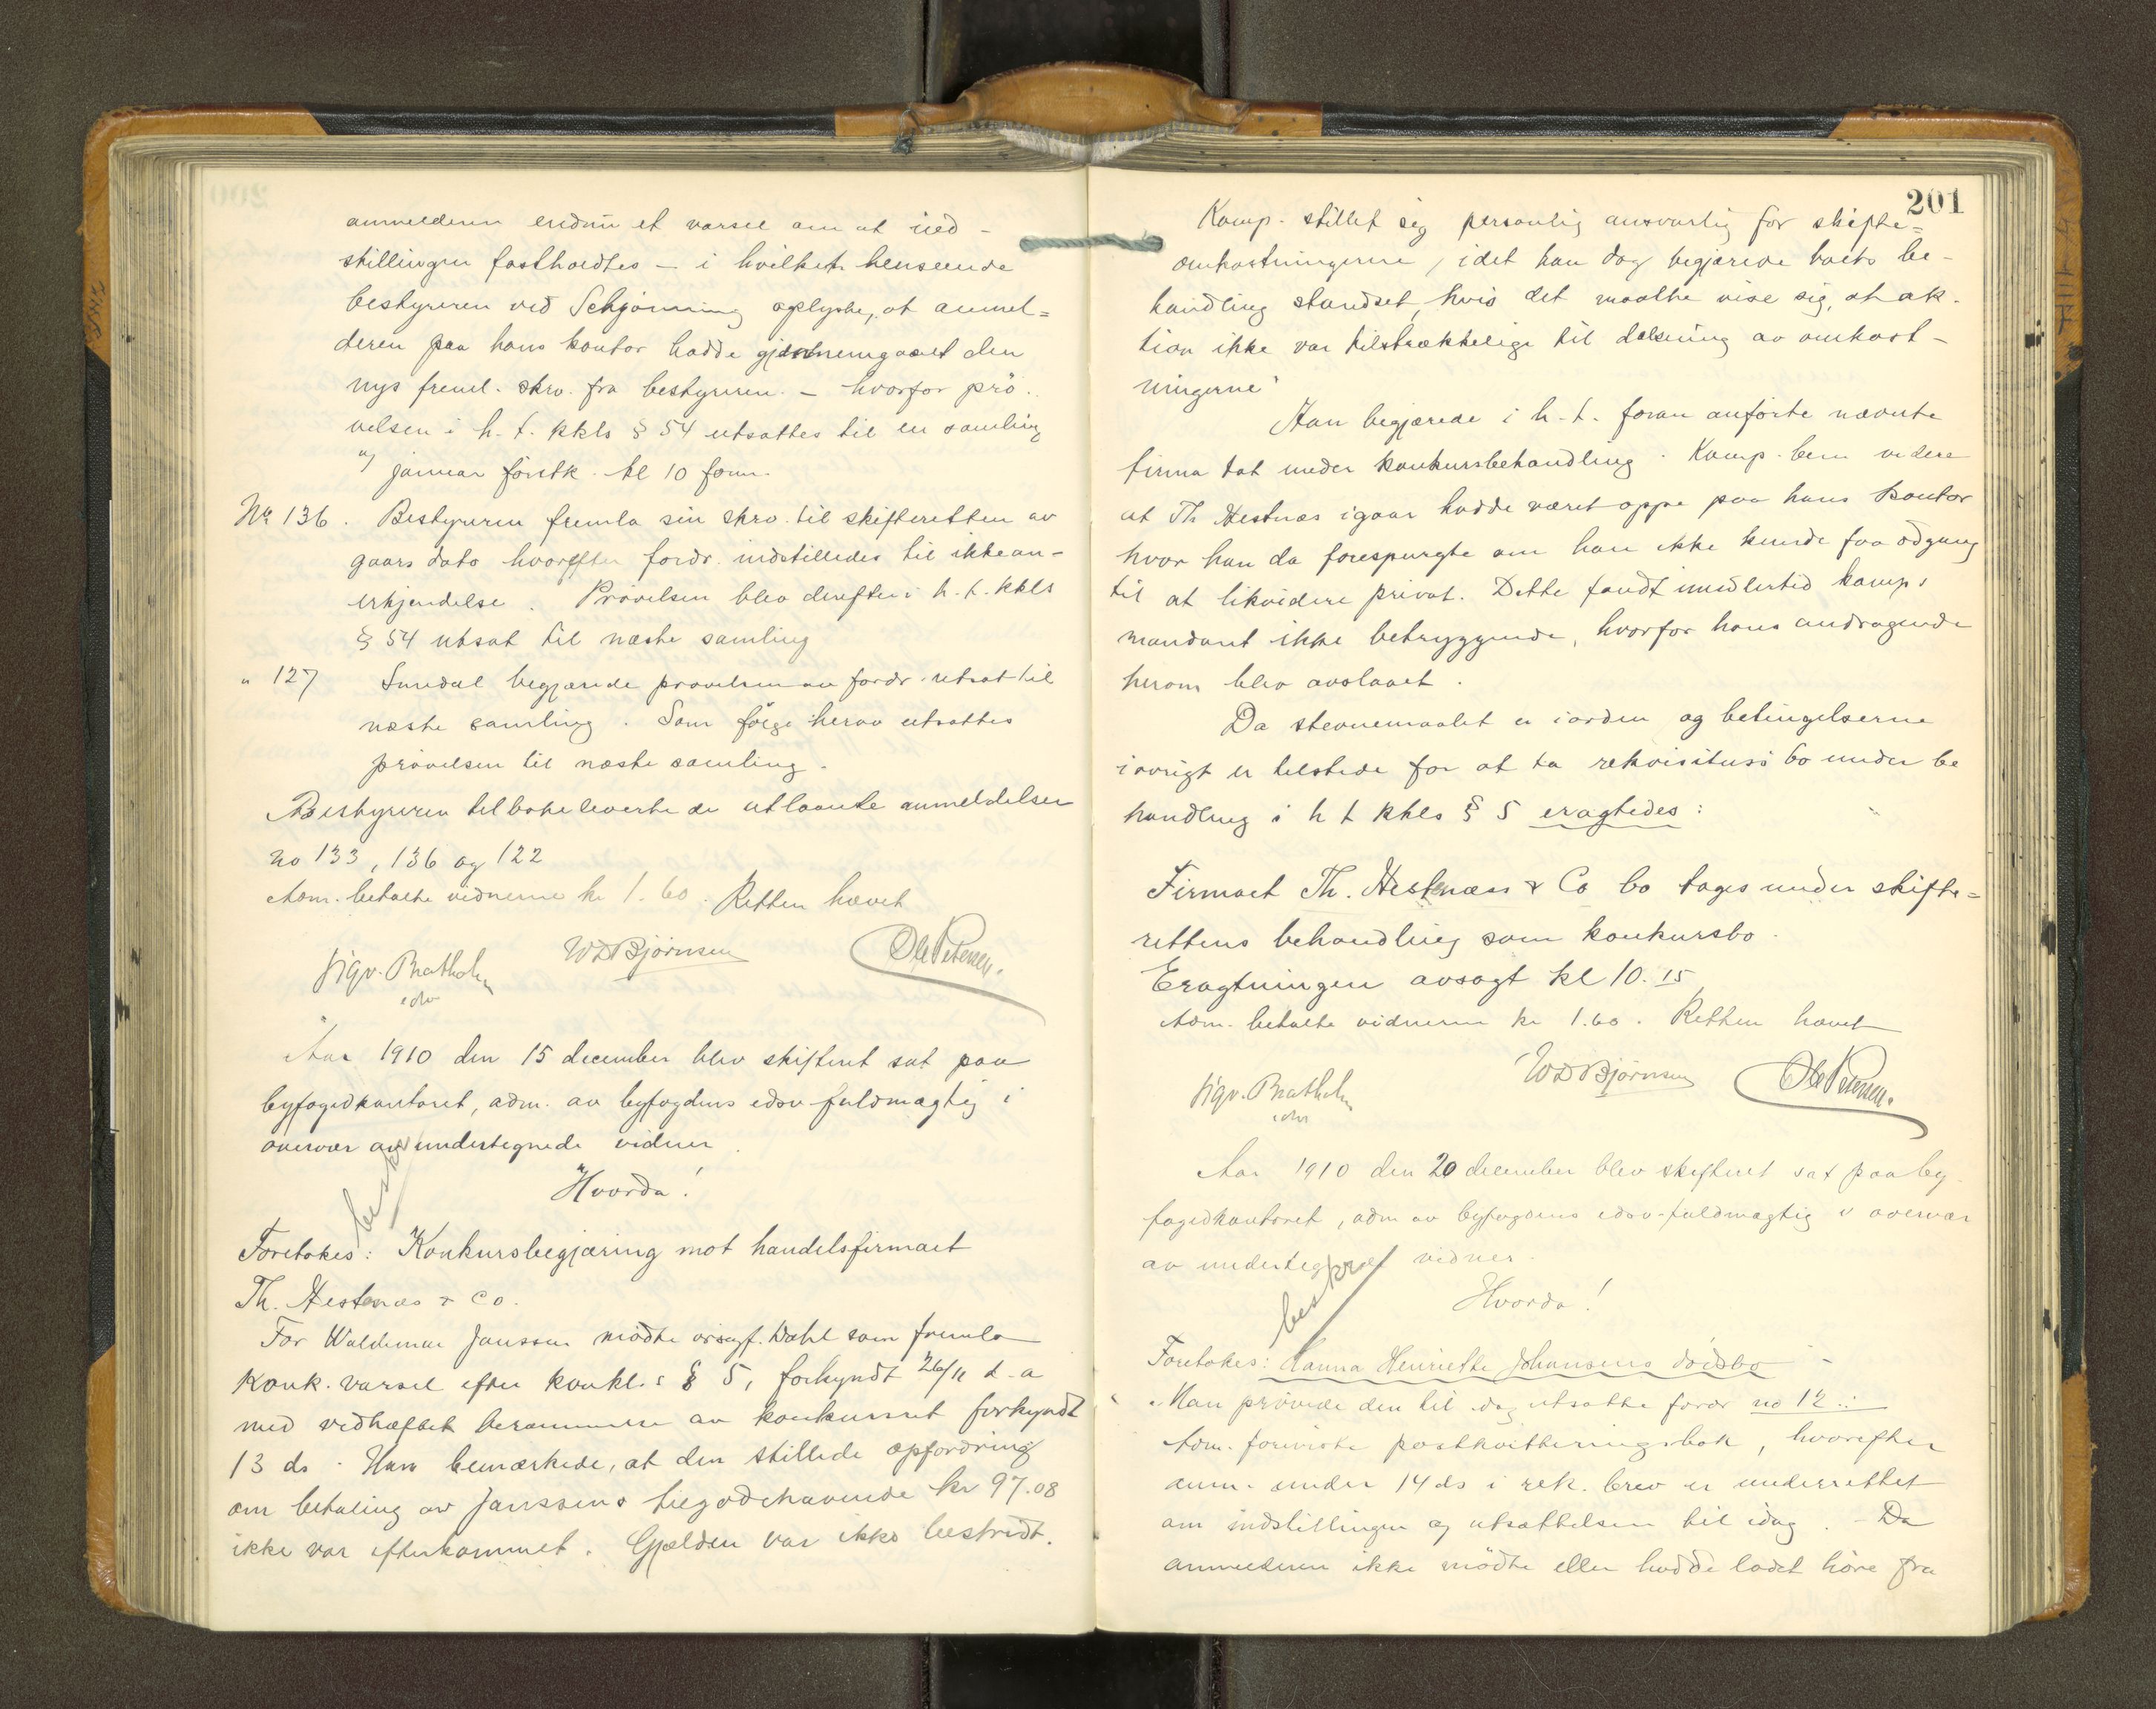 anmelderen endnu et varsel om at ind-
stillingen fastholdtes - i hvilken henseende
bestyreren ved Schjönning oplyste, at anmel=
deren paa hans kontor hadde gjennemgaaet den
nys freml. skr. fra bestyreren. - hvorfor prö-
velsen i h. t. kkls § 54 utsattes til en samling
januar förstk. kl 10 form.
No 136. Bestyreren fremla sin skr. til skifteretten av
gaars dato hvorefter fordr. indstilledes til ikkean-
erkjendelse. Prövelsen blev derefter i h. t. kkls
§ 54 utsat til næste samling
" 127 Smedal begjærede prövelsen av fordr. utsat til
næste samling. Som følge herav utsattes
prövelsen til næste samling.
Bestyreren tilbakeleverte de utlaante anmeldelser
no 133, 136 og 122
Adm. betalte vidnerne kr 1.60. Retten hævet
Sigv. Bratholm
edsv
WDBjörnsen
Ole Petersen.
Aar 1910 den 15 december blev skifteret sat paa
byfogedkontoret, adm. av byfogdens edsv. fuldmægtig i
overvær av undertegnede vidner.
Hvorda!
beskr
Foretokes: Konkursbegjæring mot handelsfirmaet
Th. Hestnæs & Co.
For Waldemar Janssen mödte orsagf. Dahl som fremla
Konk. varsel efter konkl.s § 5, forkyndt 26/11 d.a
med vedhæftet berammelse av konkursret forkyndt
13 ds. Han bemærkede, at den stillede opfordring
om betaling av Janssens tilgodehavende kr 97.08
ikke var efterkommet. Gjælden var ikke bestridt.
201
Komp. stillet sig personlig ansvarlig for skifte=
omkostningerne, idet han dog begjærede boets be-
handling standset, hvis det maatte vise sig, at ak-
tiva ikke var tilstrækkelige til dækning av omkost-
ningerne
Han begjærede i h. t. foran anförte nævnte
firma tat under konkursbehandling. Komp. bem videre
at Th Hestnæs igaar hadde været oppe paa hans kontor
hvor han da forespurgte om han ikke kunde faa adgang
til at likvidere privat. Dette fandt imidlertid komp.s
mandant ikke betryggende, hvorfor hans andragende
herom blev avslaaet.
Da stevnemaalet er iorden og betingelserne
iövrigt er tilstede for at ta rekvisitus's bo under be
handling i h t kkls § 5 eragtedes:
Firmaet Th. Hestnæss & Co bo tages under skifte=
rettens behandling som konkursbo.
Eragtningen avsagt kl 10.15
Adm. betalte vidnerne kr 1.60. Retten hævet
Sigv. Bratholm
edsv
WDBjörnsen
Ole Petersen.
Aar 1910 den 20 december blev skifteret sat paa by-
fogedkontoret, adm av byfogdens edsv. fuldmægtig i overvær
av undertegnede vidner.
beskr
Hvorda!
Foretokes: Hanna Henriette Johansens dödsbo -
Man prövede den til idag utsatte fordr no 12:
Adm. foreviste postkvitteringsbok, hvorefter
anm. under 14 ds i rek. brev er underrettet
om indstillingen og utsættelsen til idag. - Da
anmelderen ikke mödte eller hadde ladet höre fra